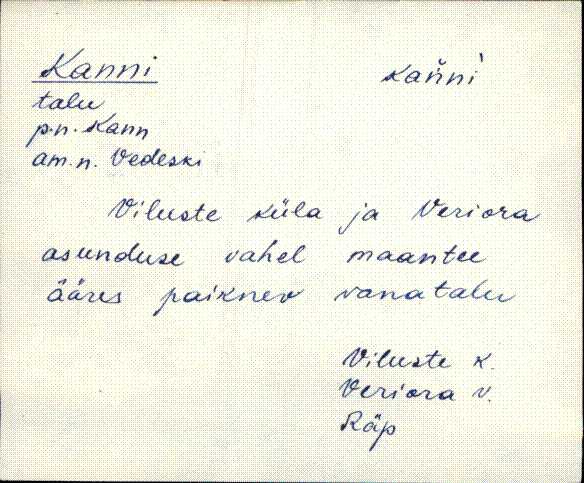 Kanni kan̆ni̇̀
talu
p.n. Kann
am.n. Vedeski
Viluste küla ja Veriora
asunduse vahel maantee
ääres paiknev vanatalu
Viluste k.
Veriora v.
Räp